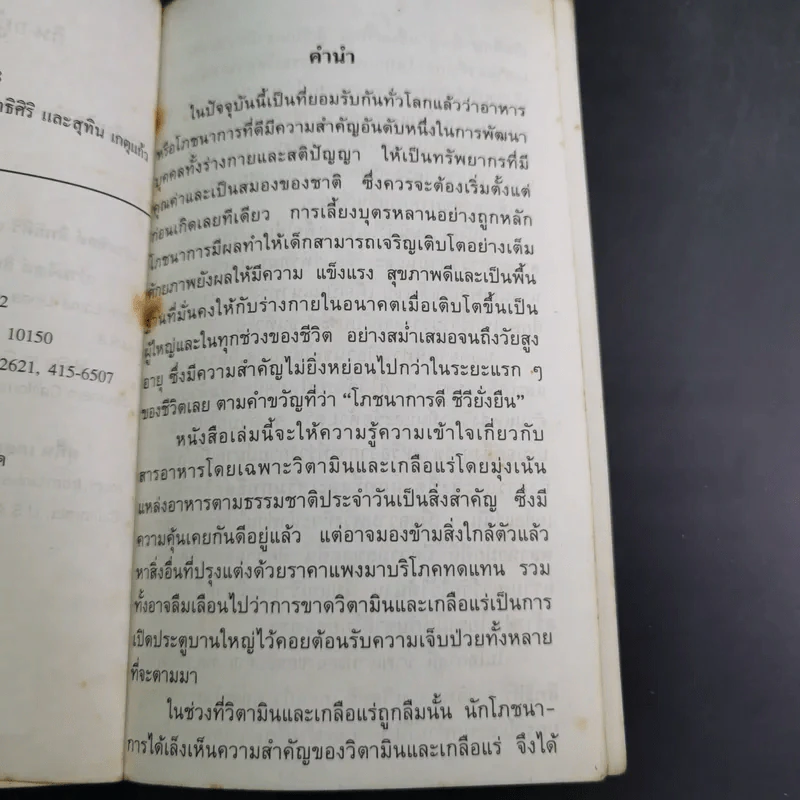 ธิศิริ และสุทิน เกตุแก้ว
2
10150
2621, 415-6507
คำนำ
ในปัจจุบันนี้เป็นที่ยอมรับกันทั่วโลกแล้วว่าอาหาร
หรือโภชนาการที่ดีมีความสำคัญอันดับหนึ่งในการพัฒนา
บุคคลทั้งร่างกายและสติปัญญา ให้เป็นทรัพยากรที่มี
คุณค่าและเป็นสมองของชาติ ซึ่งควรจะต้องเริ่มตั้งแต่
ก่อนเกิดเลยทีเดียว การเลี้ยงบุตรหลานอย่างถูกหลัก
โภชนาการมีผลทำให้เด็กสามารถเจริญเติบโตอย่างเต็ม
ศักยภาพยังผลให้มีความ แข็งแรง สุขภาพดีและเป็นพื้น
ฐานที่มั่นคงให้กับร่างกายในอนาคตเมื่อเติบโตขึ้นเป็น
ผู้ใหญ่และในทุกช่วงของชีวิต อย่างสม่ำเสมอจนถึงวัยสูง
อายุ ซึ่งมีความสำคัญไม่ยิ่งหย่อนไปกว่าในระยะแรก ๆ
ของชีวิตเลย ตามคำขวัญที่ว่า “โภชนาการดี ชีวียั่งยืน”
หนังสือเล่มนี้จะให้ความรู้ความเข้าใจเกี่ยวกับ
สารอาหารโดยเฉพาะวิตามินและเกลือแร่โดยมุ่งเน้น
แหล่งอาหารตามธรรมชาติประจำวันเป็นสิ่งสำคัญ ซึ่งมี
ความคุ้นเคยกันดีอยู่แล้ว แต่อาจมองข้ามสิ่งใกล้ตัวแล้ว
หาสิ่งอื่นที่ปรุงแต่งด้วยราคาแพงมาบริโภคทดแทน รวม
ทั้งอาจลืมเลือนไปว่าการขาดวิตามินและเกลือแร่เป็นการ
เปิดประตูบานใหญ่ไว้คอยต้อนรับความเจ็บป่วยทั้งหลาย
ที่จะตามมา
ในช่วงที่วิตามินและเกลือแร่ถูกลืมนั้น นักโภชนา-
การได้เล็งเห็นความสำคัญของวิตามินและเกลือแร่ จึงได้